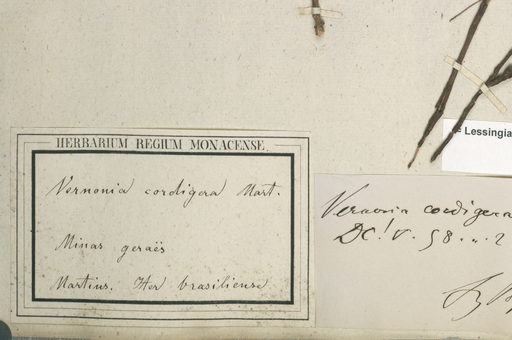 HERBARIUM REGIUM MONACENSE.
Vernonia cordigera Mart.
Minas geraës
Martius. Iter brasiliense
Lessingia
Vernonia cordigera
DC! v. 58. n. 2